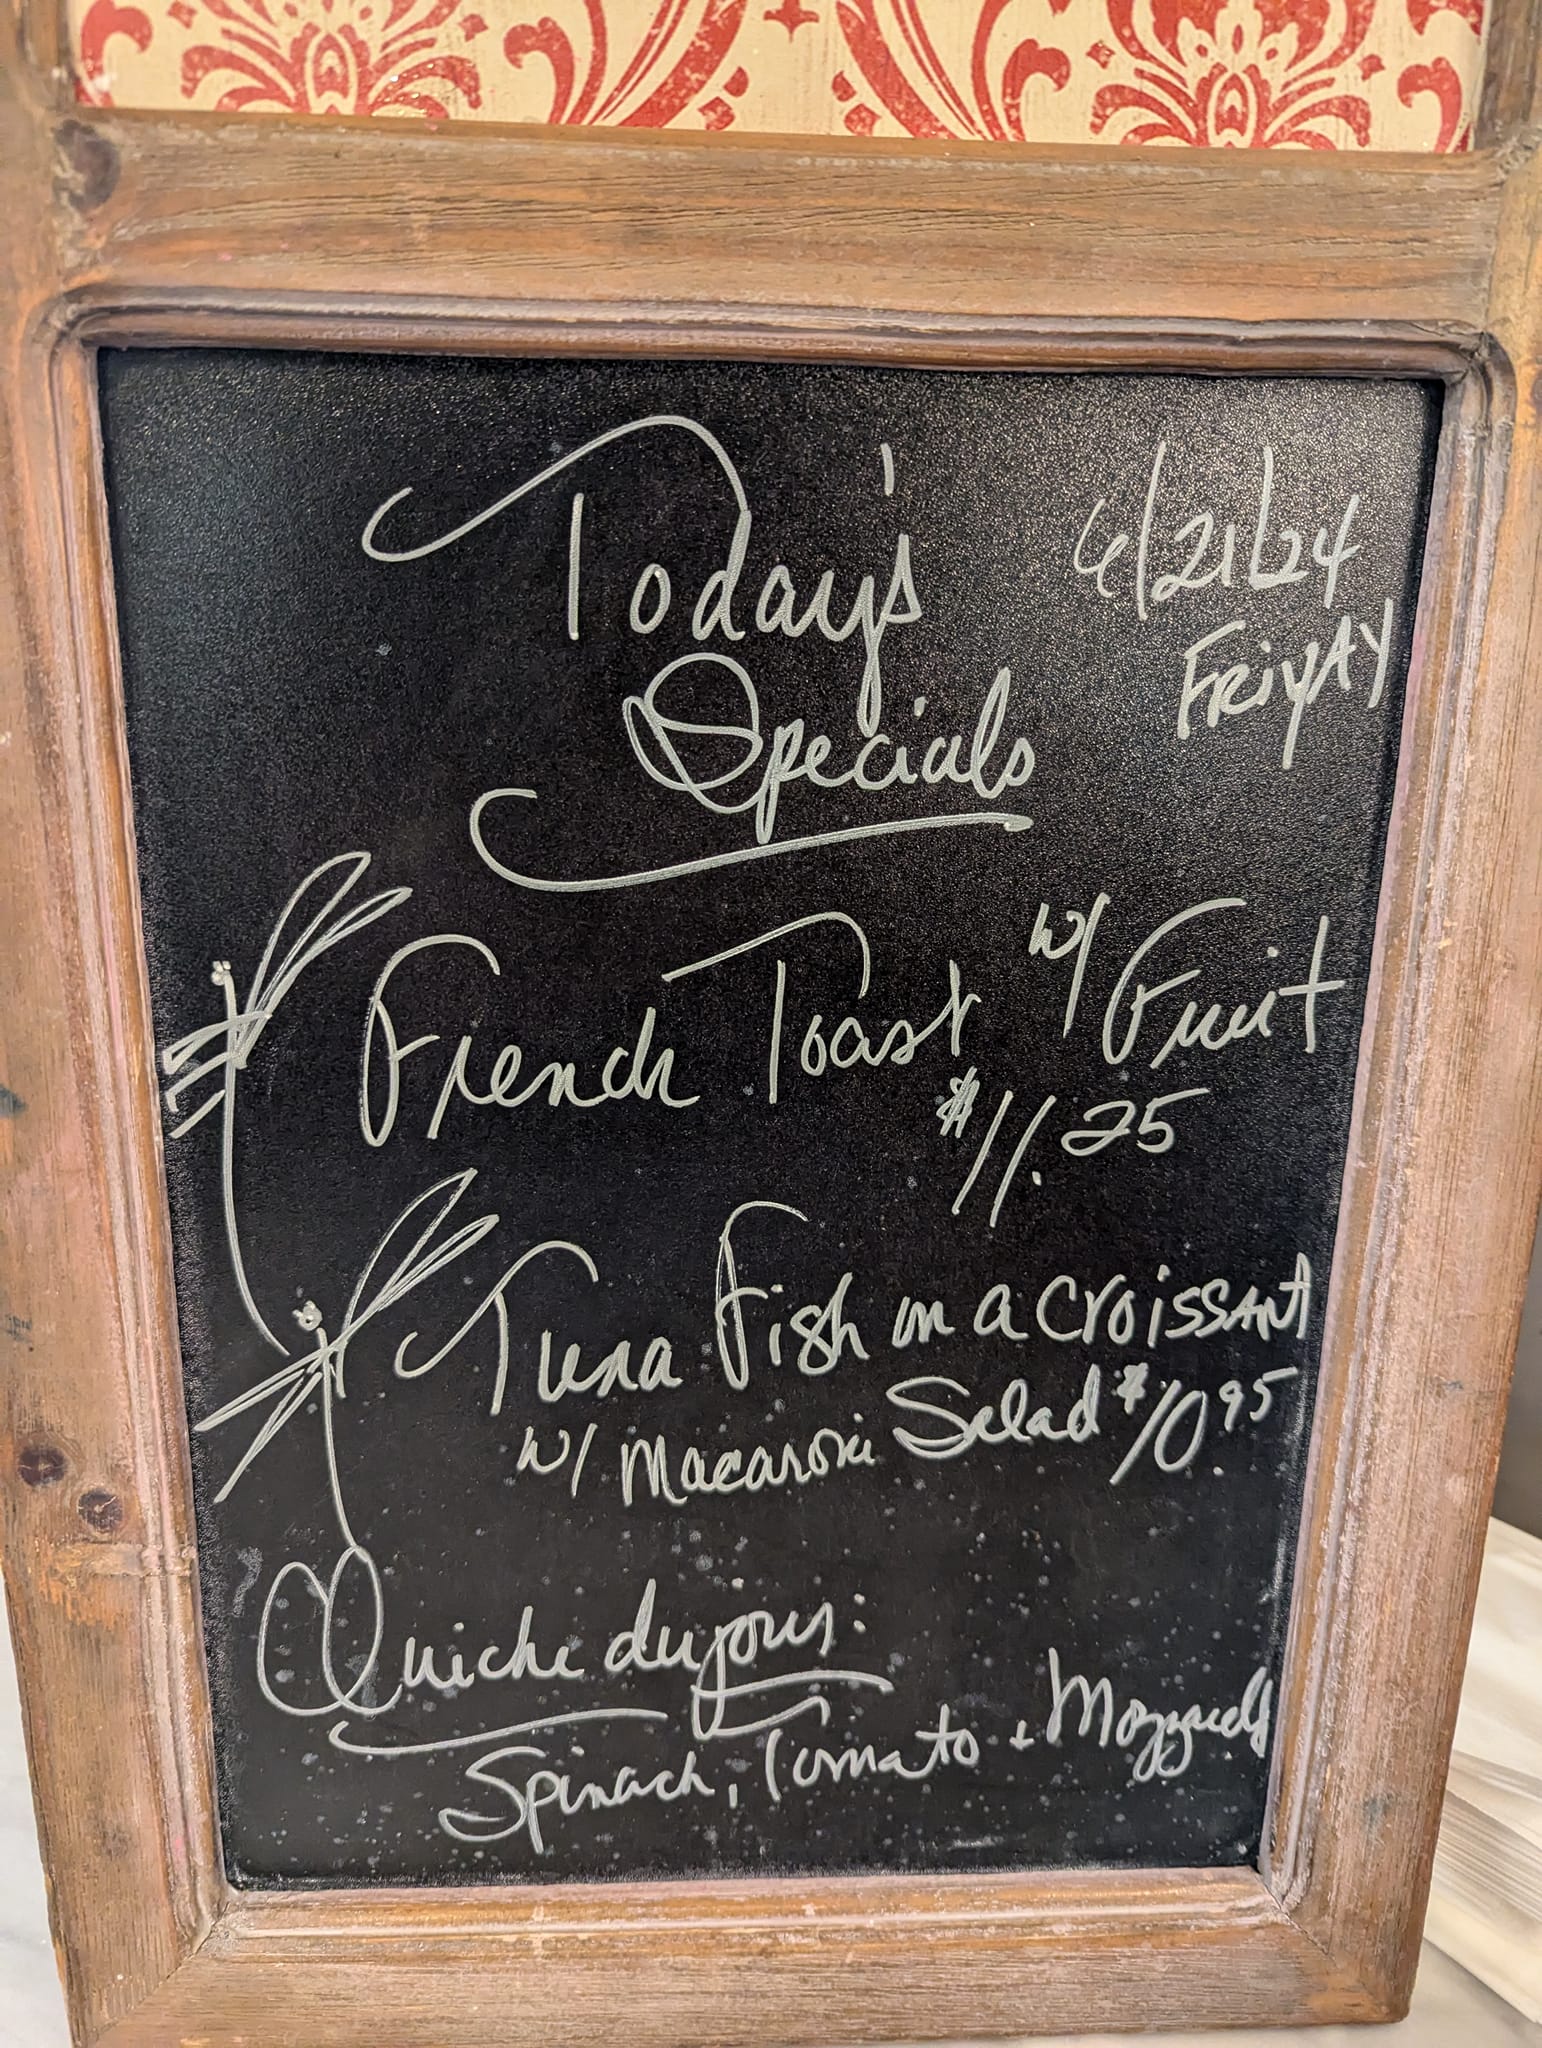 Today's
Specials
6/21/24
FRiYAY
French Toast w/ Fruit
$11.25
Tuna Fish on a croissant
w/ Macaroni Salad $10.95
Quiche du jour:
Spinach, Tomato + Mozzarella